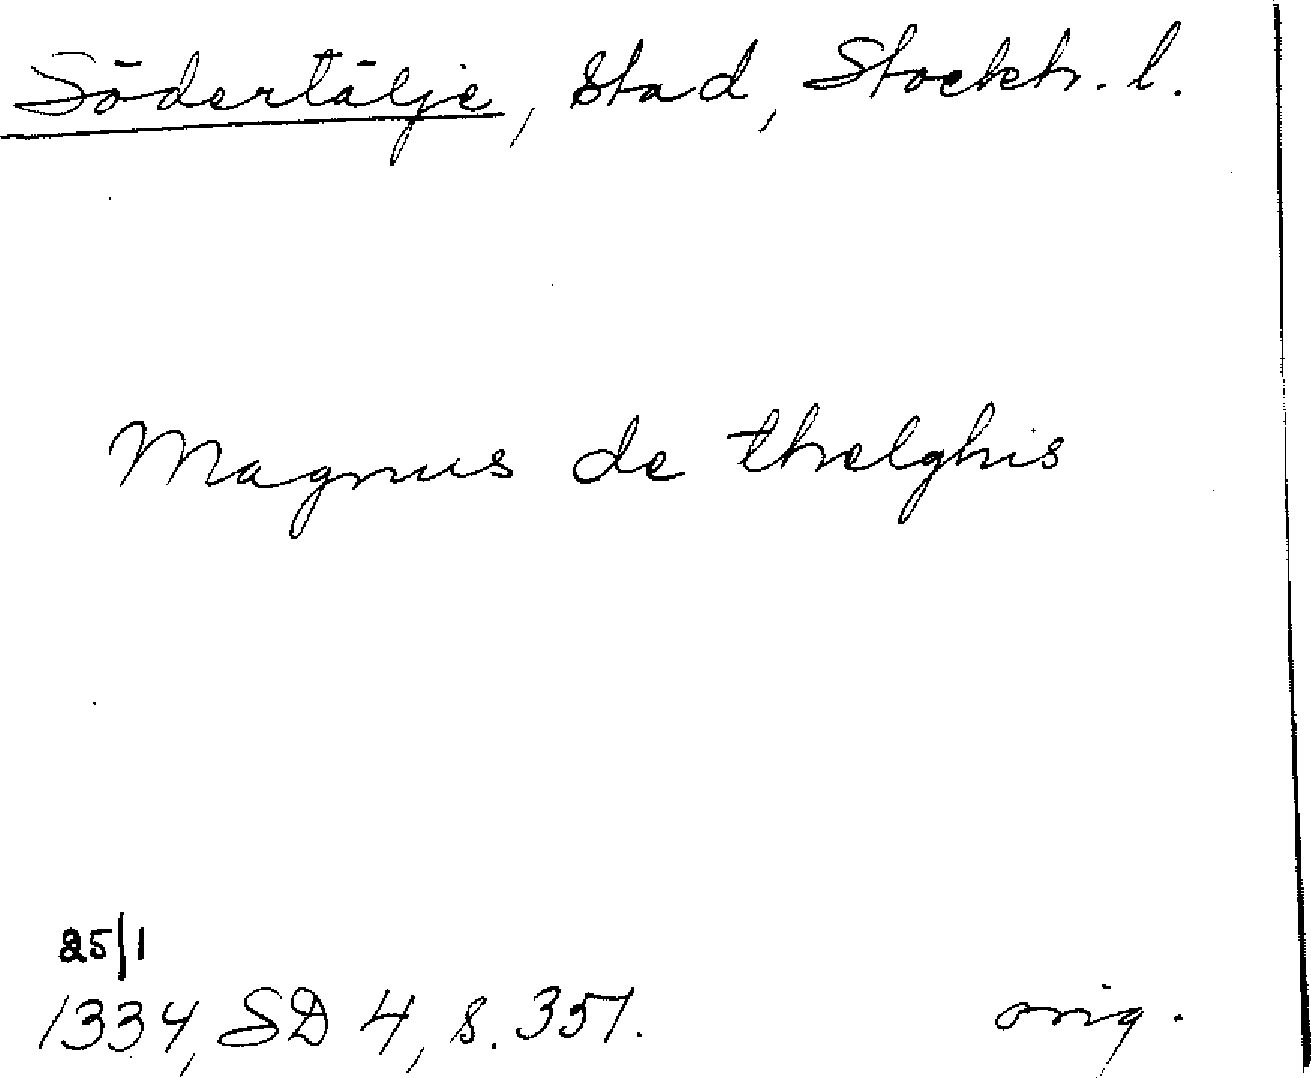 Södertälje, Stad, Stockh. l.
Magnus de thelghis
25/1
1334, SD 4, s. 351. orig.